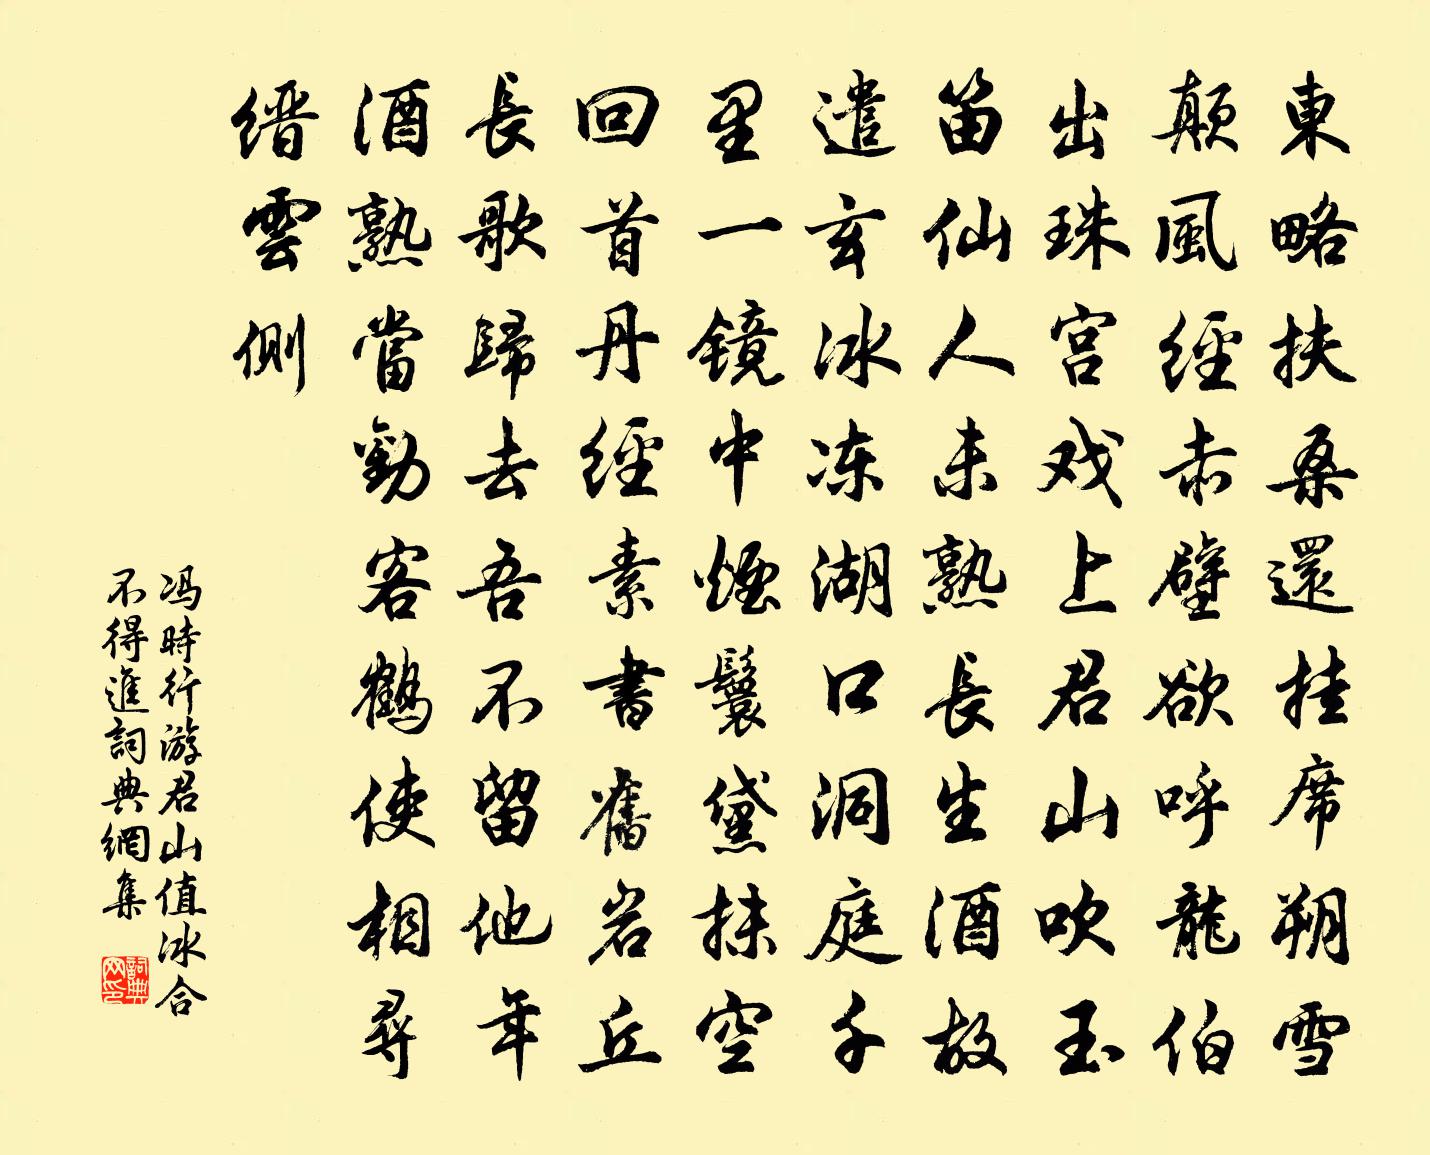 東略扶桑還挂席朔雪
顛風經赤壁欲呼龍伯
出珠宮戏上君山吹玉
笛仙人未熟長生酒故
遣玄冰冻湖口洞庭千
里一镜中煙鬟黛抹空
回首丹經素書舊岩丘
長歌歸去吾不留他年
酒熟當勸客鶴使相尋
縉雲側
冯時行游君山值冰合
不得進詞典網集
詞典网印